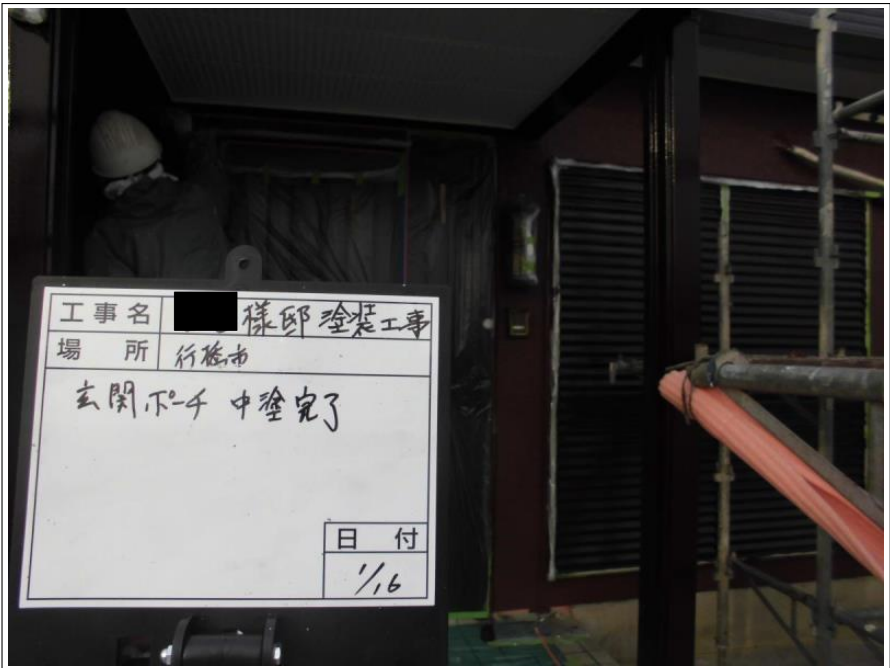 工事名 様邸 塗装工事
場所 行橋市
玄関ポーチ 中塗完了
日付
1/16